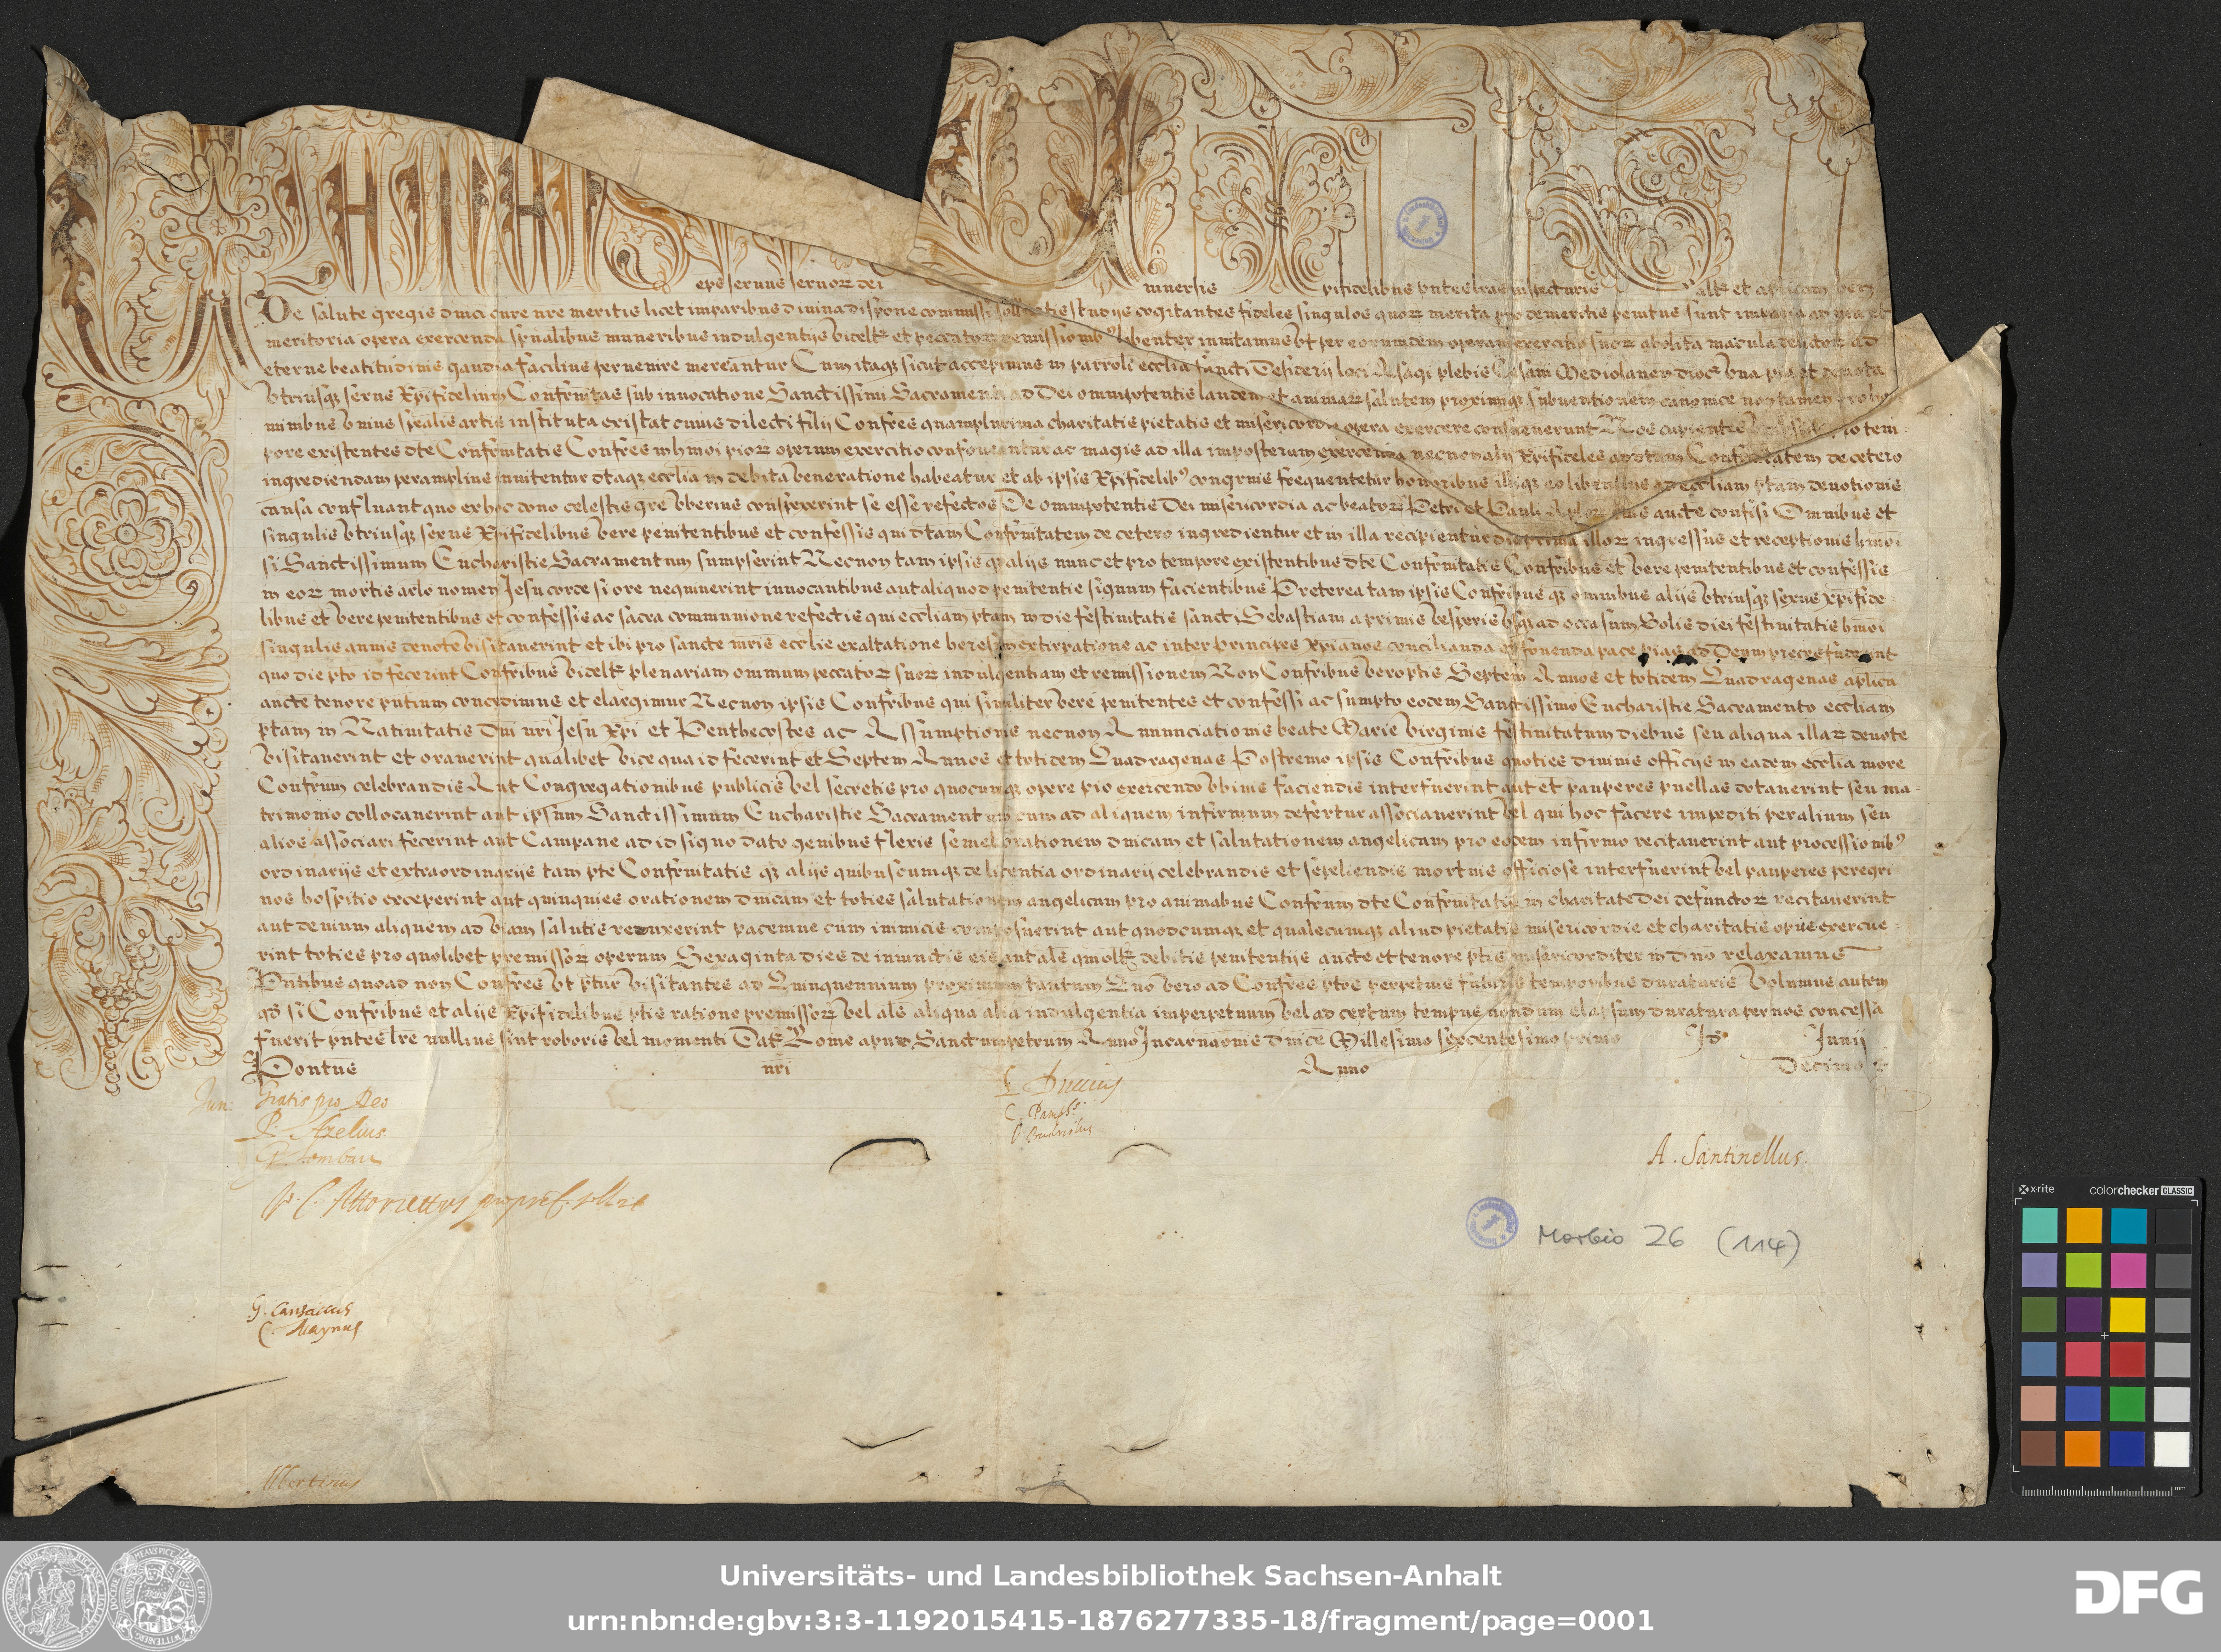 epẽ seruus seruoꝝ dei uniuersis xpifidelibus pntes lras inspecturis salt̃ et aplicam ben
De salute gregis dnici cure nre meritis licet imparibus diuina dispone commissi solicitis studijs cogitantes fideles singulos quoꝝ merita pro demeritis penitus sunt imparia ad pia et
meritoria opera exercenda spualibus muneribus indulgentijs videlt̃ et peccatoꝝ remissionibꝰ libenter inuitamus vt per eorumdem operum exercitio suoꝝ abolita macula delictoꝝ ad
eterne beatitudinis gaudia facilius peruenire mereantur Cum itaqꝫ sicut accepimus in parroli ecclia sancti Desiderij loci Asagi plebis Mediolanen dioc̃ vna pia et deuota
vtriusqꝫ sexus Xpifidelium Confrnitas sub inuocatione Sanctissimi Sacramenti ad Dei omnipotentis laudem et animaꝝ salutem proximiqꝫ subuentionem canonice non tamen pro ho
minibus vnius spealis artis instituta existat cuius dilecti filij Confres quamplurima charitatis pietatis et misericordie opera exercere consueuerunt Nos cupientes pro tem
pore existentes dte Confrnitatis Confres in hmoi pioꝝ operum exercitio confoueantur ac magis ad illa imposterum exercenda necnon alij Xpifideles ad dtam Confrnitatem de cetero
ingrediendam peramplius inuitentur dtaqꝫ ecclia in debita veneratione habeatur et ab ipsis Xpifidelibꝰ congruis frequentetur honoribus illiqꝫ eo libentius ad eccliam ptam deuotionis
causa confluant quo ex hoc dono celestis gre vberius conspexerint se esse refectos De omnipotentis Dei misericordia ac beatoꝝ Petri et Pauli Aploꝝ eius aucte confisi Omnibus et
singulis vtriusqꝫ sexus Xpifidelibus vere penitentibus et confessis qui dtam Confrnitatem de cetero ingredientur et in illa recipientur die prima illoꝝ ingressus et receptionis hmoi
si Sanctissimum Eucharistie Sacramentum sumpserint Necnon tam ipsis qꝫ alijs nunc et pro tempore existentibus dte Confrnitatis Confribus et vere penitentibus et confessis
in eoꝝ mortis arlo nomen Jesu corde si ore nequiuerint inuocantibus aut aliquod penitentie signum facientibus Preterea tam ipsis Confribus qꝫ omnibus alijs vtriusqꝫ sexus Xpifide
libus et vere penitentibus et confessis ac sacra communione refectis qui eccliam ptam in die festiuitatis sancti Sebastiani a primis vesperis vsqꝫ ad occasum Solis diei festiuitatis hmoi
singulis annis deuote visitauerint et ibi pro sancte mris ecclie exaltatione heresum extirpatione ac inter Principes Xpianos concilianda et fouenda pace pias ad Deum preces fuderint
quo die pto id fecerint Confribus videlt̃ plenariam omnium peccatoꝝ suoꝝ indulgentiam et remissionem Non Confribus vero ptis Septem Annos et totidem Quadragenas aplica
aucte tenore pntium concedimus et elargimur Necnon ipsis Confribus qui similiter vere penitentes et confessi ac sumpto eodem Sanctissimo Eucharistie Sacramento eccliam
ptam in Natiuitatis Dni nri Jesu Xpi et Penthecostes ac Assumptionis necnon Annunciationis beate Marie virginis festiuitatum diebus seu aliqua illaꝝ deuote
visitauerint et orauerint qualibet vice qua id fecerint et Septem Annos et totidem Quadragenas Postremo ipsis Confribus quoties diuinis officijs in eadem ecclia more
Confrum celebrandis Aut Congregationibus publicis vel secretis pro quocunqꝫ opere pio exercendo vbiuis faciendis interfuerint aut et pauperes puellas dotauerint seu ma
trimonio collocauerint aut ipsum Sanctissimum Eucharistie Sacramentum cum ad aliquem infirmum defertur associauerint vel qui hoc facere impediti per alium seu
alios associari fecerint aut Campane ad id signo dato genibus flexis semel orationem dnicam et salutationem angelicam pro eodem infirmo recitauerint aut processionibꝰ
ordinarijs et extraordinarijs tam pte Confrnitatis qꝫ alijs quibuscumqꝫ de licentia ordinarij celebrandis et sepeliendis mortuis officiose interfuerint vel pauperes peregri
nos hospitio exceperint aut quinquies orationem dnicam et toties salutationem angelicam pro animabus Confrum dte Confrnitatis in charitate Dei defunctoꝝ recitauerint
aut deuium aliquem ad viam salutis reduxerint pacemue cum inimicis composuerint aut quodcumqꝫ et qualecumqꝫ aliud pietatis misericordie et charitatis opus exercue
rint toties pro quolibet premissoꝝ operum Sexaginta dies de iniunctis eis aut als qmolt̃ debitis penitentijs aucte et tenore ptis misericorditer in dno relaxamus
Pntibus quoad non Confres vt ptur visitantes ad Quinquennium proximum tantum Quo vero ad Confres ptos perpetuis futuris temporibus duraturis Volumus autem
qd si Confribus et alijs Xpifidelibus ptis ratione premissoꝝ vel als aliqua alia indulgentia imperpetuum vel ad certum tempus nondum elapsum duratura per nos concessa
fuerit pntes lre nullius sint roboris vel momenti Dat̃ Rome apud Sanctumpetrum Anno Incarnaonis dnice Millesimo sexcentesimo primo Id Junij
Pontus nri Anno Decimo
Jun: Gratis pro Deo
A. Santinellus.
Morbio 26 (114)
C. Maynus
Albertinus
x-rite colorchecker CLASSIC
mm
Universitäts- und Landesbibliothek Sachsen-Anhalt
urn:nbn:de:gbv:3:3-1192015415-1876277335-18/fragment/page=0001
DFG